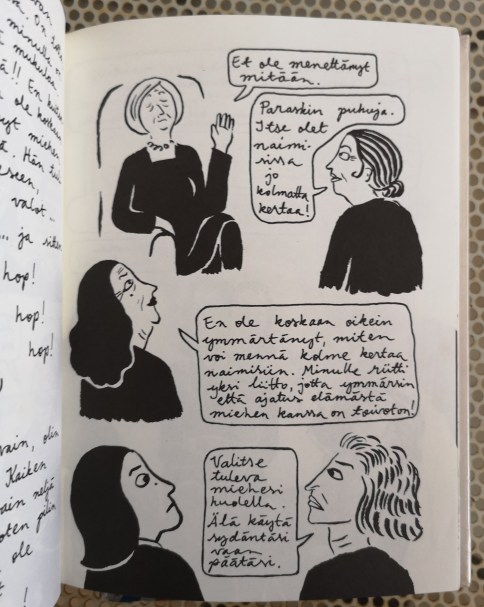 minulla on
ole
Hän
valot...
... ja
hop!
hop!
hop!
vain, olin
Kaiken
neljä
ole
Et ole menettänyt
mitään.
Paraskin puhuja.
Itse olet
naimi-
sissa
jo
kolmatta
kertaa!
En ole koskaan oikein
ymmärtänyt, miten
voi mennä kolme kertaa
naimisiin. Minulle riitti
yksi liitto, jotta ymmärsin
että ajatus elämästä
miehen kanssa on toivoton!
Valitse
tuleva
miehesi
huolella.
Älä käytä
sydäntäsi
vaan
päätäsi.